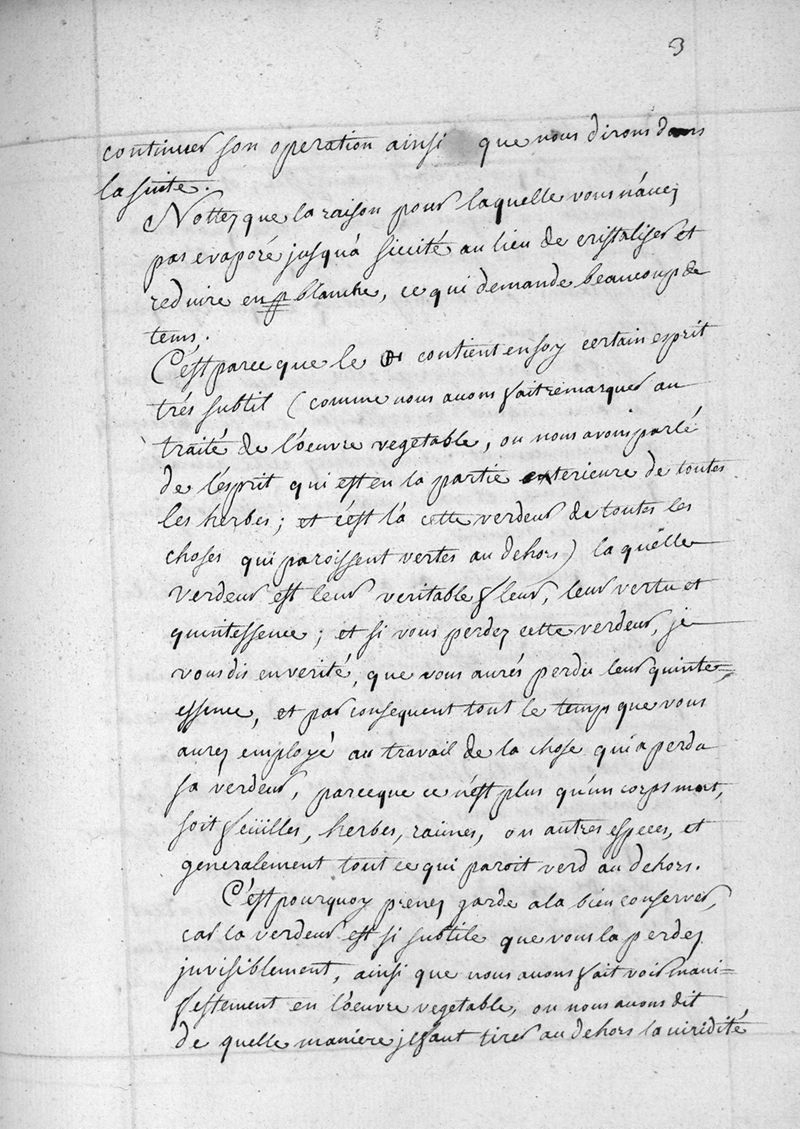 3
continuer son operation ainsi que nous dirons dans
la suite.
Nottez que la raison pour laquelle vous n'avez
pas evaporé jusqu'à siccité au lieu de cristaliser et
reduire en blanche, ce qui demande beaucoup de
tems.
C'est parce que le contient en soy certain esprit
trés subtil (comme nous avons fait remarquer au
traité de l'oeuvre vegetable, ou nous avons parlé
de l'esprit qui est en la partie exterieure de toutes
les herbes; et c'est là cette verdeur de toutes les
choses qui paroissent vertes au dehors) la quelle
verdeur est leur veritable fleur, leur vertu et
quintessence; et si vous perdez cette verdeur, je
vous dis en verité, que vous aurés perdu leur quinte=
essence, et par consequent tout le temps que vous
aurez employé au travail de la chose qui a perdu
sa verdeur, parceque ce n'est plus qu'un corps mort,
soit feüilles, herbes, racines, ou autres especes, et
generalement tout ce qui paroit verd au dehors.
C'est pourquoy prenez garde a la bien conserver,
car la verdeur est si subtile que vous la perdez
jnvisiblement, ainsi que nous avons fait voir mani=
festement en l'oeuvre vegetable, ou nous avons dit
de quelle maniere jl faut tirer au dehors la viridité